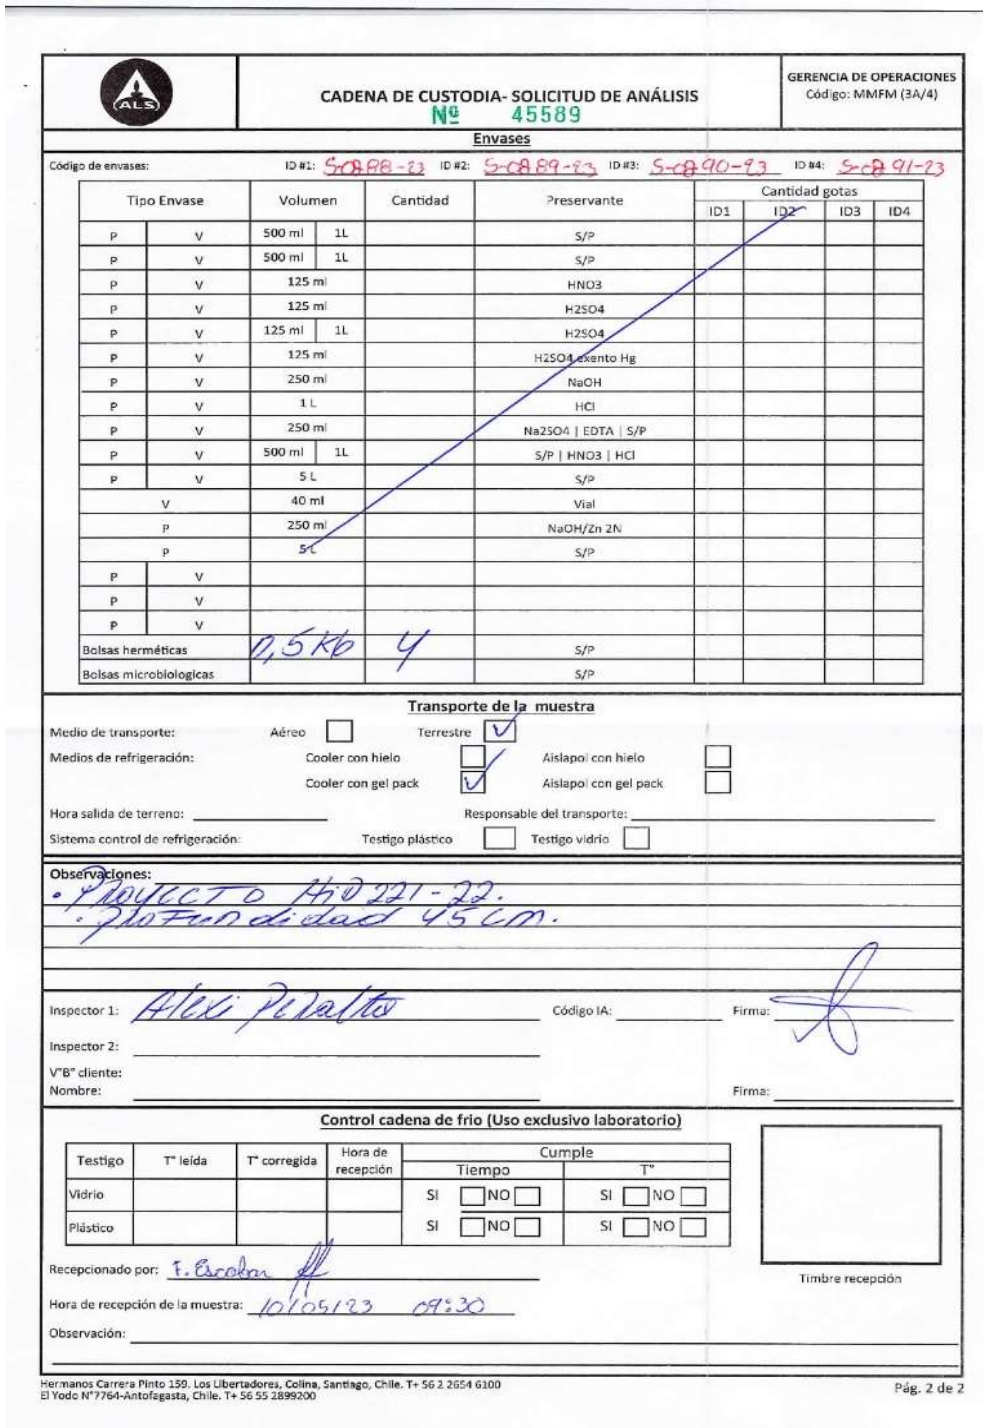 ALS
CADENA DE CUSTODIA- SOLICITUD DE ANÁLISIS
Nº 45589
GERENCIA DE OPERACIONES
Código: MMFM (3A/4)
Envases
Código de envases: ID #1: ID #2: ID #3: ID #4:
Tipo Envase Volumen Cantidad Preservante Cantidad gotas
ID1 ID2 ID3 ID4
P V 500 ml 1L S/P
P V 500 ml 1L S/P
P V 125 ml HNO3
P V 125 ml H2SO4
P V 125 ml 1L H2SO4
P V 125 ml H2SO4 exento Hg
P V 250 ml NaOH
P V 1 L HCl
P V 250 ml Na2SO4 | EDTA | S/P
P V 500 ml 1L S/P | HNO3 | HCl
P V 5 L S/P
V 40 ml Vial
P 250 ml NaOH/Zn 2N
P 5 L S/P
P V
P V
P V
Bolsas herméticas 0,5 4 S/P
Bolsas microbiologicas S/P
Transporte de la muestra
Medio de transporte: Aéreo Terrestre
Medios de refrigeración: Cooler con hielo Aislapol con hielo
Cooler con gel pack Aislapol con gel pack
Hora salida de terreno: Responsable del transporte:
Sistema control de refrigeración: Testigo plástico Testigo vidrio
Observaciones:
• Proyecto HiD 221-22.
• profundidad 45 cm.
Inspector 1: Alexi Peralta Código IA: Firma:
Inspector 2:
V°B° cliente:
Nombre: Firma:
Control cadena de frio (Uso exclusivo laboratorio)
Testigo T° leída T° corregida Hora de recepción Cumple
Tiempo T°
Vidrio SI NO SI NO
Plástico SI NO SI NO
Recepcionado por: F. Escobar
Timbre recepción
Hora de recepción de la muestra: 10/05/23 09:30
Observación:
Hermanos Carrera Pinto 159. Los Libertadores, Colina, Santiago, Chile. T+ 56 2 2654 6100
El Yodo N°7764-Antofagasta, Chile. T+ 56 55 2899200
Pág. 2 de 2